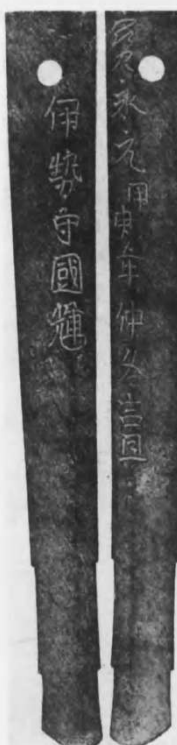 寳永元甲申年仲冬吉旦
伊勢守國輝